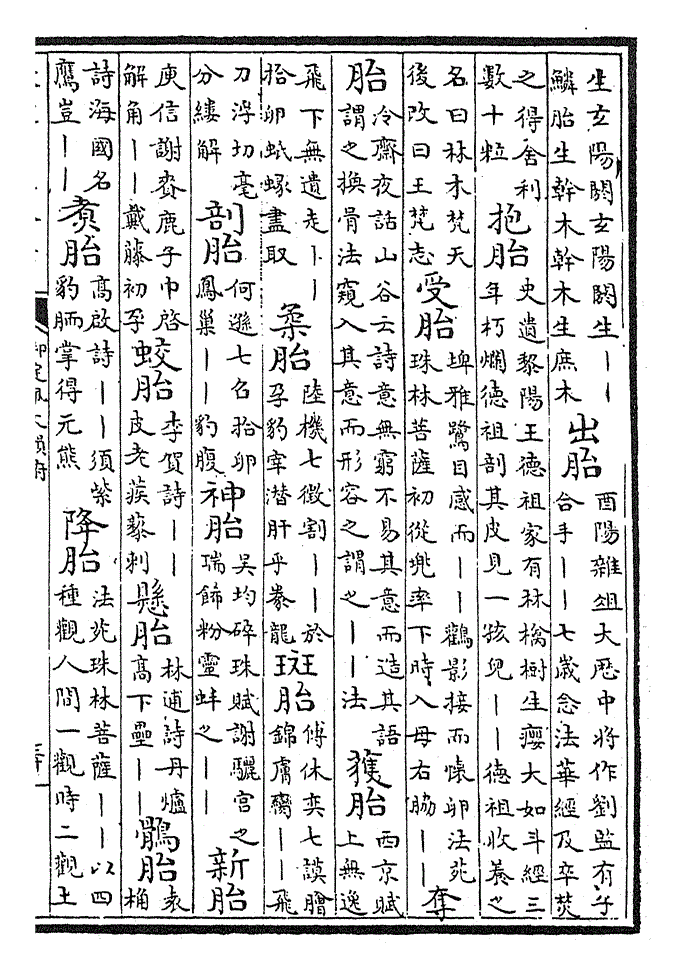 生玄陽閼玄陽閼生——
鱗胎生幹木幹木生庶木
出胎
酉陽雜俎大歷中將作劉監有子
合手——七歲念法華經及卒焚
之得舍利
數十粒
抱胎
史遺黎陽王德祖家有林檎樹生癭大如斗經三
年朽爛德祖剖其皮見一孩兒——德祖收養之
名曰林木梵天
後改曰王梵志
受胎
埤雅鷺目感而——鸛影接而懷卵法苑
珠林菩薩初從兜率下時入母右脇——
奪
胎
冷齋夜話山谷云詩意無窮不易其意而造其語
謂之換骨法窺入其意而形容之謂之——法
獲胎
西京賦
上無逸
飛下無遺走——
拾卵蚳蝝盡取
柔胎
陸機七徵割——於
孕豹宰潛肝乎豢龍
斑胎
傅休奕七謨膾
錦膚臠——飛
刀浮切毫
分縷解
剖胎
何遜七召拾卵
鳳巢——豹腹
神胎
吳均碎珠賦謝驪宮之
瑞飾粉靈蚌之——
新胎
庾信謝賚鹿子巾啓
解角——戴藤初孕
蛟胎
李賀詩——
皮老蒺藜刺
懸胎
林逋詩丹爐
高下壘——
鶻胎
袁
桷
詩海國名
鷹豈——
煮胎
高啟詩——須紫
豹胹掌得元熊
降胎
法苑珠林菩薩——以四
種觀人間一觀時二觀土